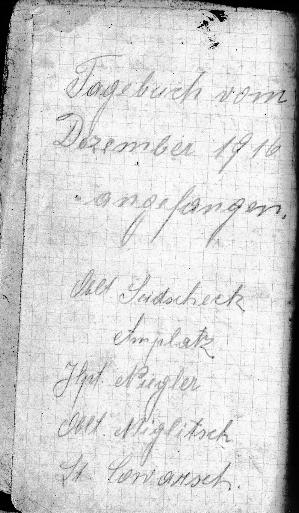 Tagebuch vom
Dezember 1916
angefangen.
Oblt Sudscheck
Amplatz
Hpt. Riegler
Oblt. Miglitsch
Lt.